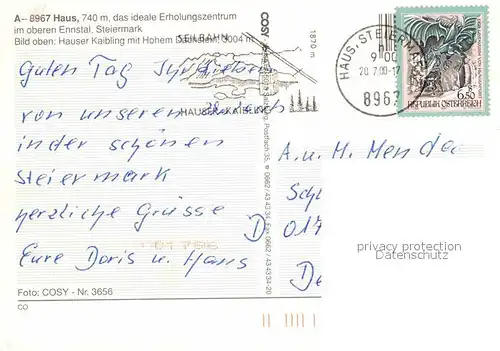 A– 8967 Haus, 740 m, das ideale Erholungszentrum
im oberen Ennstal, Steiermark
Bild oben: Hauser Kaibling mit Hohem Dachstein, 3004 m
SEILBAHN
1870 m
HAUSER KAIBLING
HAUS, STEIERMARK
9 00
20.7.00-17
8967
6.50
REPUBLIK ÖSTERREICH
Guten Tag Ihr Lieben
von unserem Urlaub
in der schönen
Steiermark
herzliche Grüsse
Eure Doris u. Hans
COSY
Postfach 35, 0662/43 43 34, Fax 0662/43 43 34-20
A. u. H. Mende
Sch
D 017
De
privacy protection
Datenschutz
Foto: COSY - Nr. 3656
CO